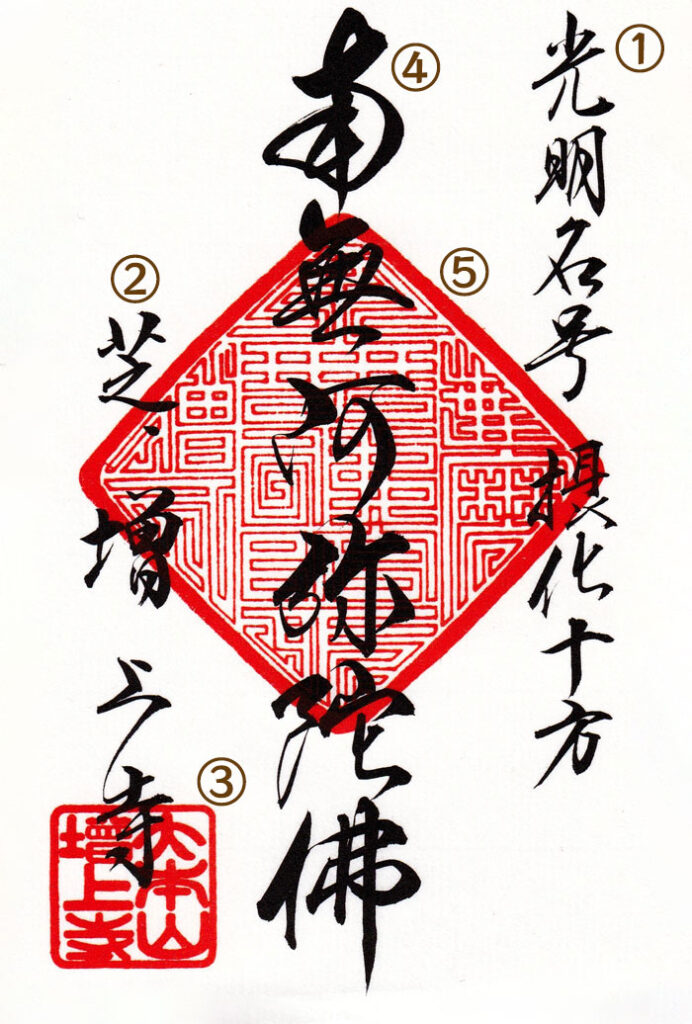 ①
光明名号 摂化十方
④
南無阿弥陀佛
⑤
②
芝・増上寺
③
大本山
増上寺